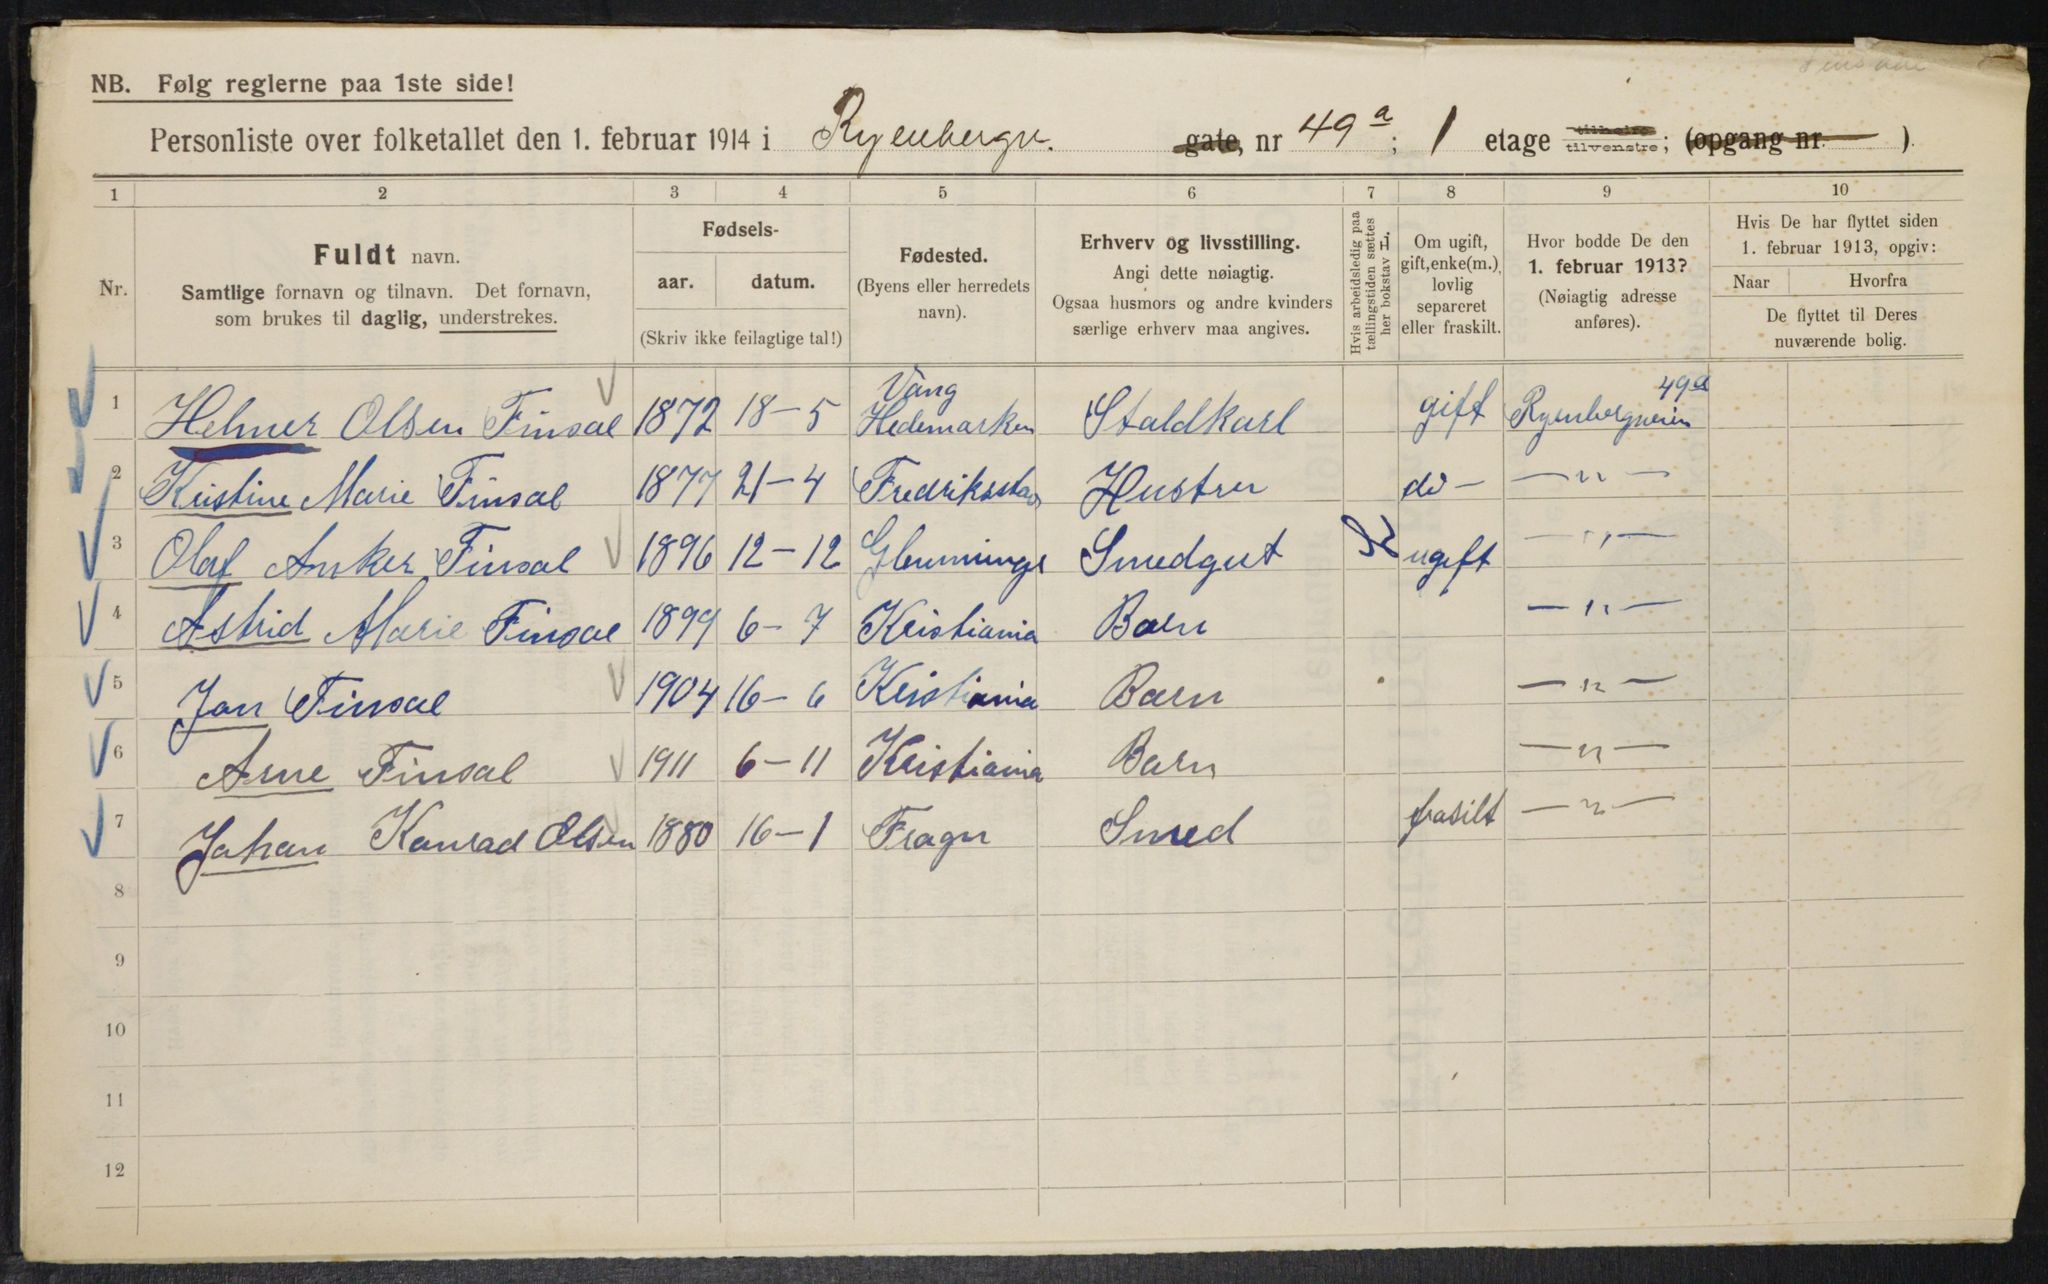 NB. Følg reglerne paa 1ste side!
Personliste over folketallet den 1. februar 1914 i Ryenbergv. gate, nr 49a; 1 etage tilhøire tilvenstre; (opgang nr. ).
1 2 3 4 5 6 7 8 9 10
Nr.
Fuldt navn.
Samtlige fornavn og tilnavn. Det fornavn,
som brukes til daglig, understrekes.
Fødsels-
aar. datum.
(Skriv ikke feilagtige tal!)
Fødested.
(Byens eller herredets
navn).
Erhverv og livsstilling.
Angi dette nøiagtig.
Ogsaa husmors og andre kvinders
særlige erhverv maa angives.
Hvis arbeidsledig paa
tællingstiden sættes
her bokstav L.
Om ugift,
gift, enke(m.),
lovlig
separeret
eller fraskilt.
Hvor bodde De den
1. februar 1913?
(Nøiagtig adresse
anføres).
Hvis De har flyttet siden
1. februar 1913, opgiv:
Naar Hvorfra
De flyttet til Deres
nuværende bolig.
1 Helmer Olsen Finsal 1872 18-5 Vang Hedemarken Staldkarl gift Ryenbergveien 49a
2 Kristine Marie Finsal 1877 21-4 Fredriksstad Hustru do - -"-
3 Olaf Anker Finsal 1896 12-12 Glemminge Smedgut ugift -"-
4 Astrid Marie Finsal 1899 6-7 Kristiania Barn -"-
5 Jan Finsal 1904 16-6 Kristiania Barn -"-
6 Arne Finsal 1911 6-11 Kristiania Barn -"-
7 Johan Konrad Olsen 1880 16-1 Fragn Smed frasilt -"-
8
9
10
11
12